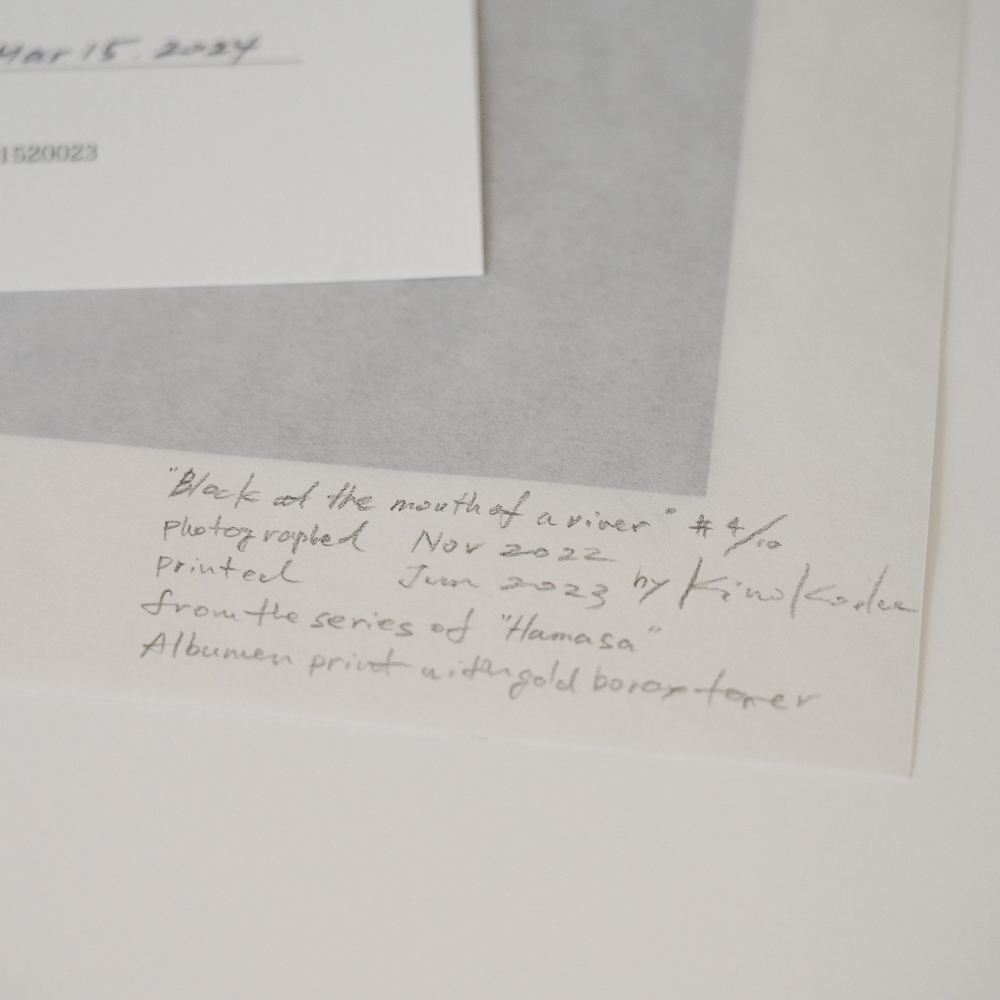 Mar 15. 2024
1520023
"Black at the mouth of a river" #4/10
photographed Nov 2022
printed Jun 2023 by Kino Koike
from the series of "Hamasa"
Albumen print with gold borax toner